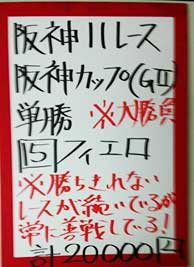 阪神11レース
阪神カップ(GⅡ)
単勝 ※大勝負
15 フィエロ
※勝ちきれない
レースが続いているが
常に善戦してる!
計20000円